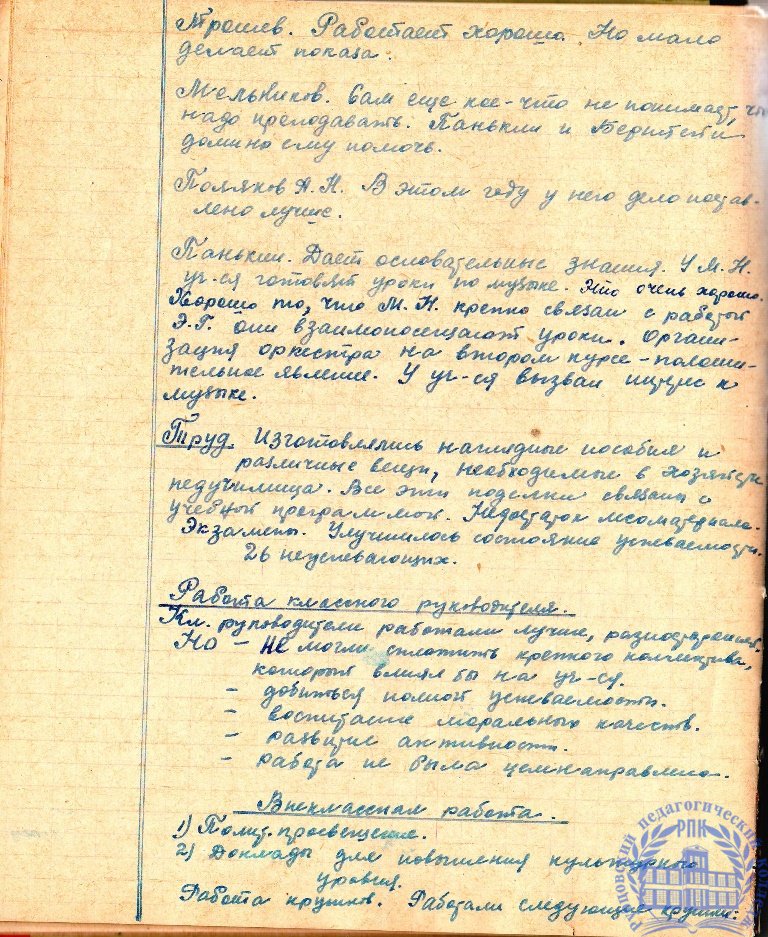 Трошев. Работает хорошо. Но мало
делает показа.
Мельников. Сам еще кое-что не понимает, что
надо преподавать. Панькин и Бернштейн
должно ему помочь.
Поляков А.Н. В этом году у него дело постав-
лено лучше.
Панькин. Дает основательные знания. У М.Н.
уч-ся готовят уроки по музыке. Это очень хорошо.
Хорошо то, что М.Н. крепко связан с работой
Э.Г. Они взаимопосещают уроки. Органи-
зация оркестра на втором курсе - положи-
тельное явление. У уч-ся вызван интерес к
музыке.
Труд. Изготовлялись наглядные пособия и
различные вещи, необходимые в хозяйстве
педучилища. Все эти поделки связаны с
учебной программой. Недостаток лесоматериала.
Экзамены. Улучшилось состояние успеваемости.
26 неуспевающих.
Работа классного руководителя.
Кл. руководители работали лучше,
Но - не могли сплотить крепкого коллектива,
который влиял бы на уч-ся.
- добиться полной успеваемости.
- воспитание моральных качеств.
- развитие активности.
- работа не была целенаправлена.
Внеклассная работа.
1) Полит. просвещение.
2) Доклады для повышения культурного
уровня.
Работа кружков. Работали следующие кружки:
педагогический колледж
РПК